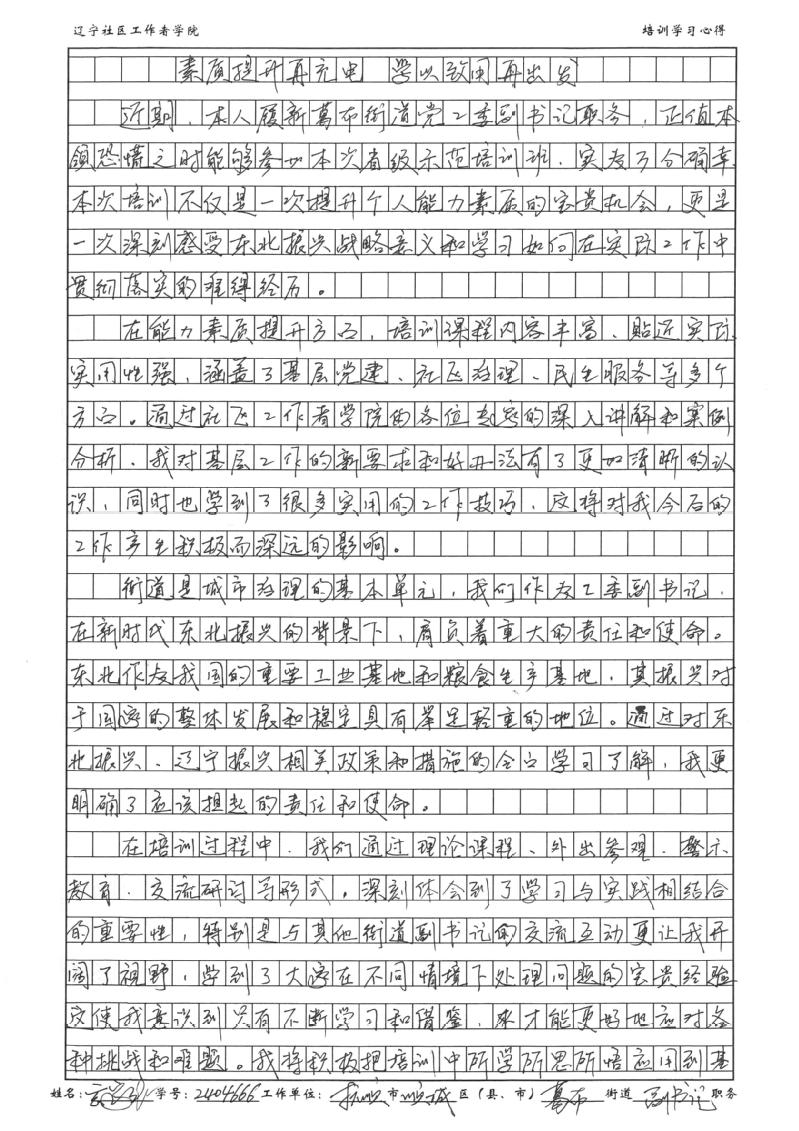 辽宁社区工作者学院 培训学习心得
素质提升再充电 学以致用再出发
近期，本人履新葛布街道党工委副书记职务，正值本
领恐慌之时能够参加本次省级示范培训班，实为万分确幸
本次培训不仅是一次提升个人能力素质的宝贵机会，更是
一次深刻感受东北振兴战略意义和学习如何在实际工作中
贯彻落实的难得经历。
在能力素质提升方面，培训课程内容丰富、贴近实际
实用性强，涵盖了基层党建、社区治理、民生服务等多个
方面。通过社区工作者学院的各位专家的深入讲解和案例
分析，我对基层工作的新要求和好办法有了更加清晰的认
识，同时也学到了很多实用的工作技巧，这将对我今后的
工作产生积极而深远的影响。
街道是城市治理的基本单元，我们作为工委副书记，
在新时代东北振兴的背景下，肩负着重大的责任和使命。
东北作为我国的重要工业基地和粮食生产基地，其振兴对
于国家的整体发展和稳定具有举足轻重的地位。通过对东
北振兴、辽宁振兴相关政策和措施的全面学习了解，我更
明确了应该担起的责任和使命。
在培训过程中，我们通过理论课程、外出参观、警示
教育、交流研讨等形式，深刻体会到了学习与实践相结合
的重要性，特别是与其他街道副书记的交流互动更让我开
阔了视野，学到了大家在不同情境下处理问题的宝贵经验
这使我意识到只有不断学习和借鉴，来才能更好地应对各
种挑战和难题。我将积极把培训中所学所思所悟应用到基
姓名： 学号：2404666 工作单位：抚顺市顺城区（县、市）葛布街道副书记职务